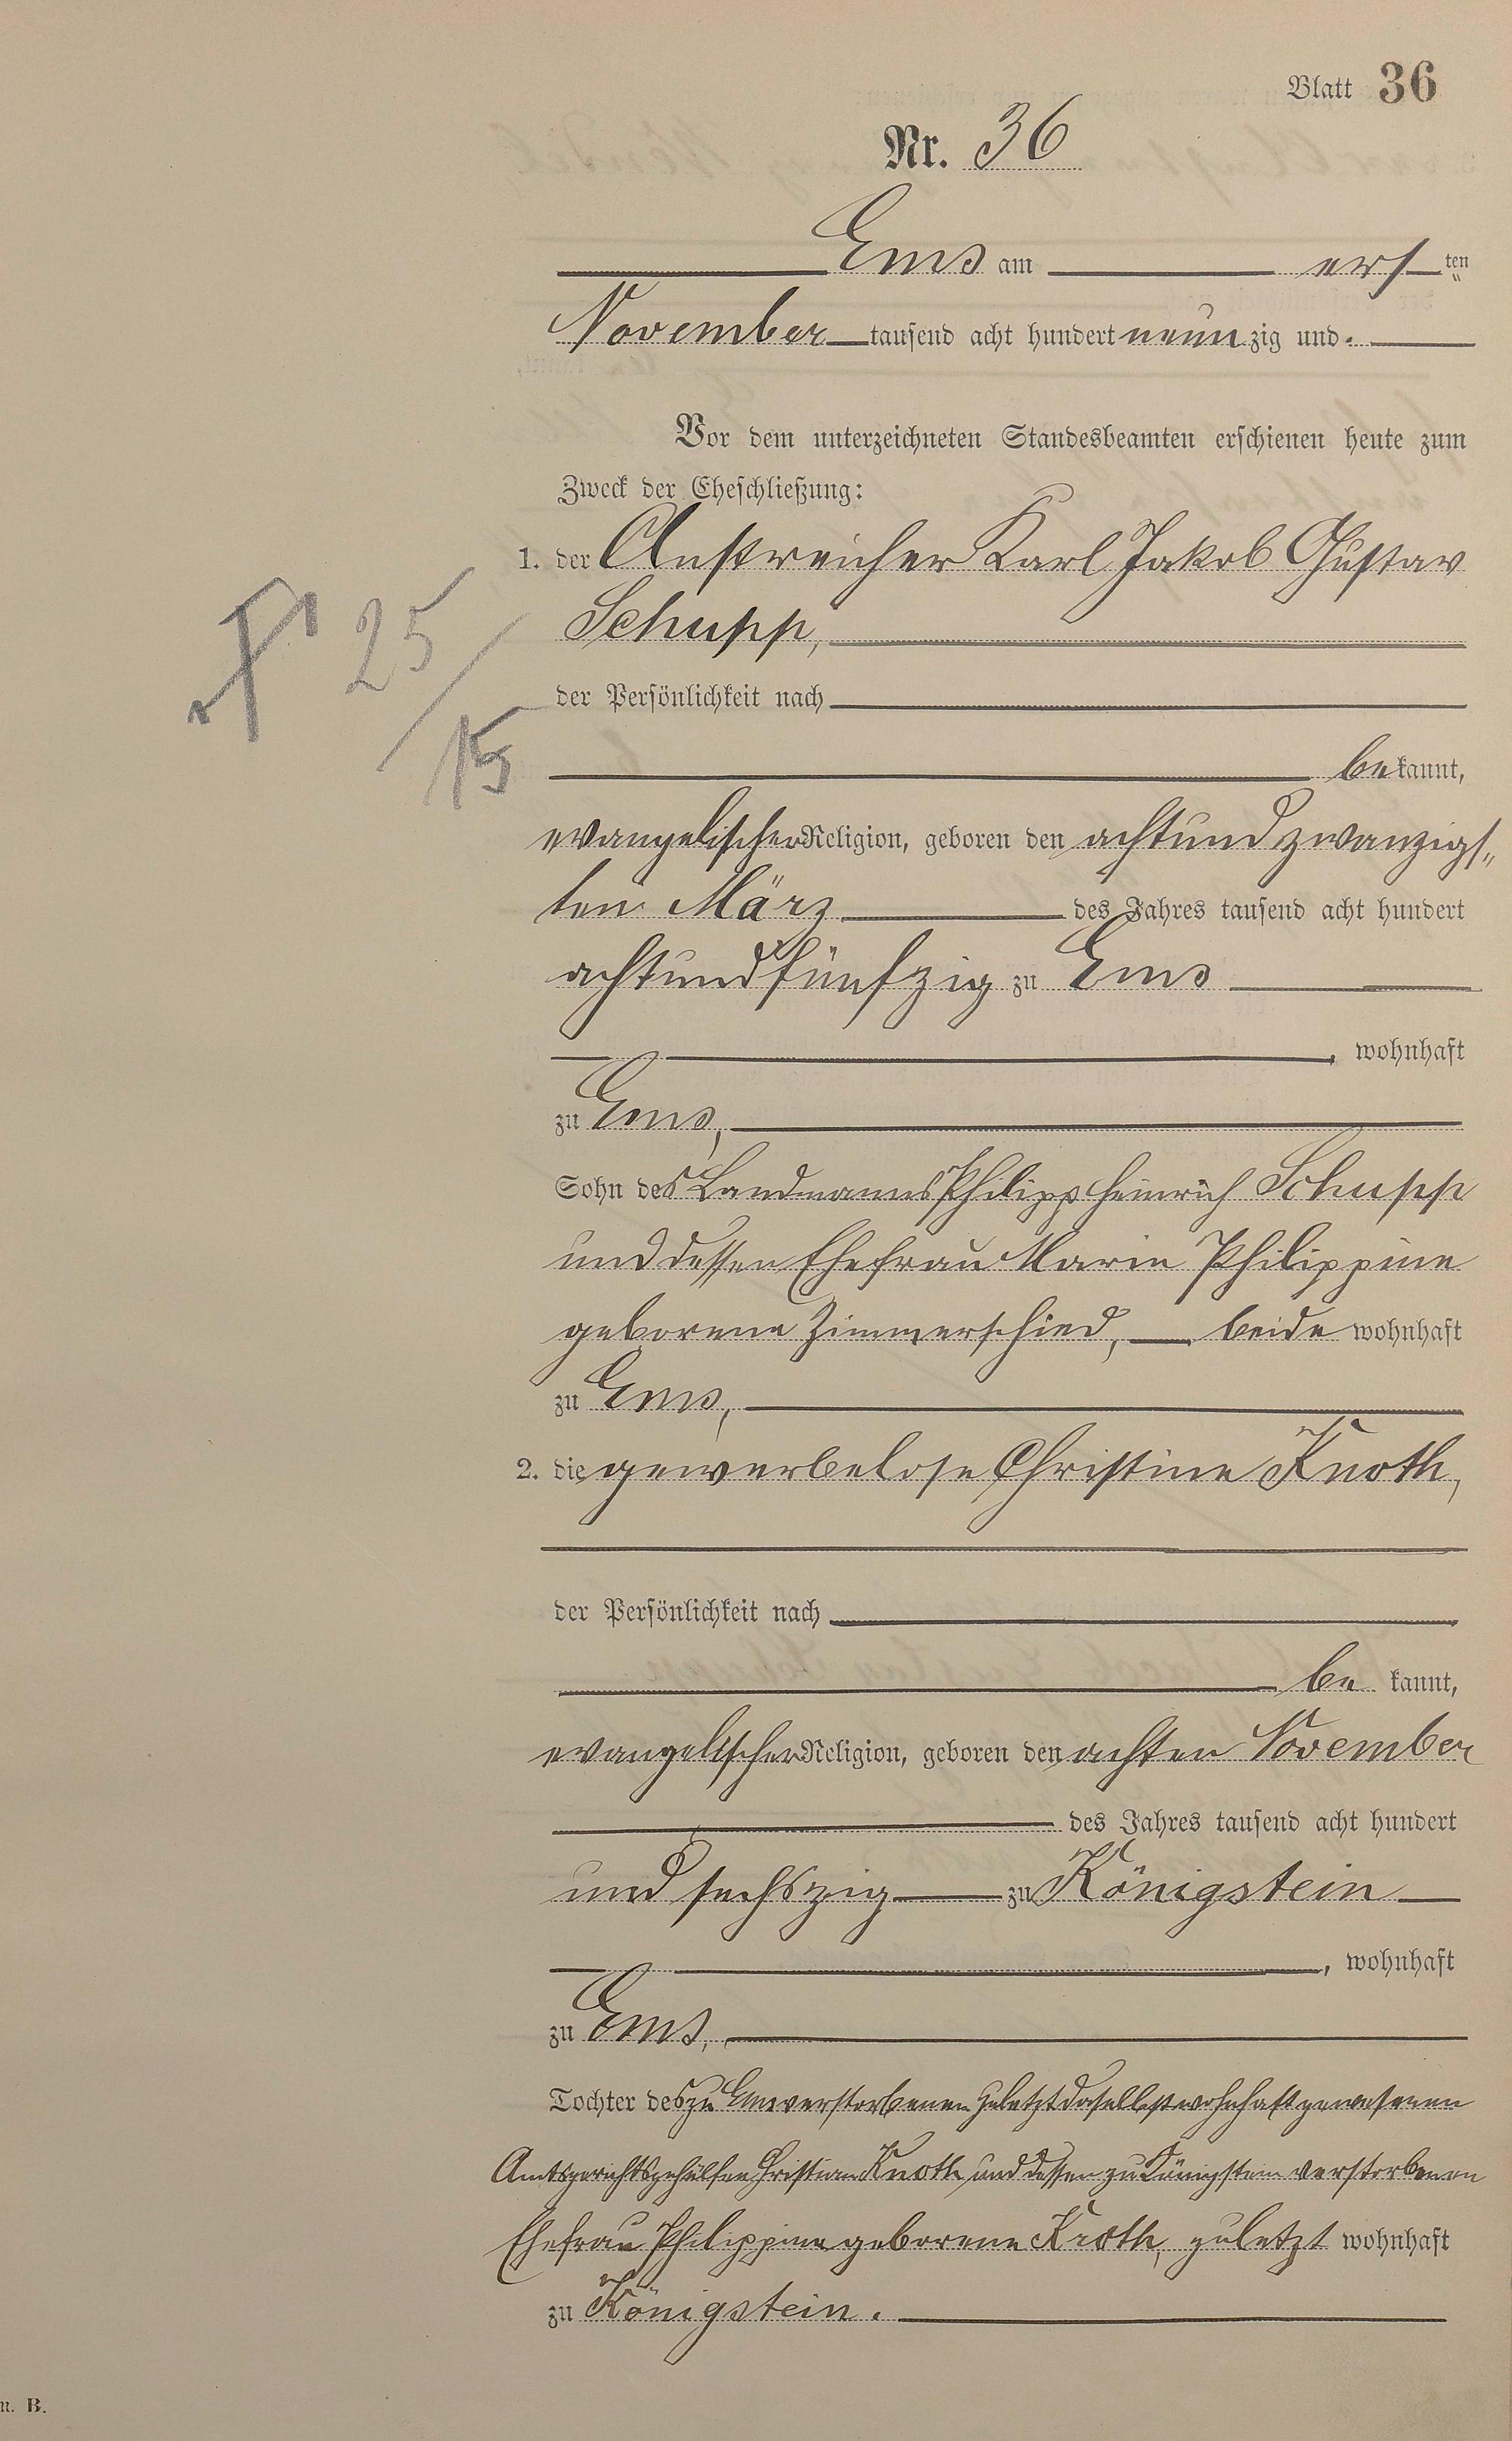 Blatt 36
Nr. 36
Ems am ersten
November tausend acht hundert neunzig und.
Vor dem unterzeichneten Standesbeamten erschienen heute zum
Zweck der Eheschließung:
1. der Anstreicher Karl Jakob Gustav
Schupp,
25/15
der Persönlichkeit nach
bekannt,
evangelischer Religion, geboren den achtundzwanzigs„
ten März des Jahres tausend acht hundert
achtundfünfzig zu Ems
, wohnhaft
zu Ems,
Sohn des Landmanns Philipp Heinrich Schupp
und dessen Ehefrau Marie Philippine
geborene Zimmerschied, beide wohnhaft
zu Ems,
2. die gewerbelose Christine Knoth,
der Persönlichkeit nach
bekannt,
evangelischer Religion, geboren den achten November
des Jahres tausend acht hundert
und sechszig zu Königstein
, wohnhaft
zu Ems,
Tochter des zu Ems verstorbenen zuletzt daselbst wohnhaft gewesenen
Amtsgerichtsgehülfen Christian Knoth und dessen zu Königstein verstorbenen
Ehefrau Philippine geborene Kroth, zuletzt wohnhaft
zu Königstein.
B.